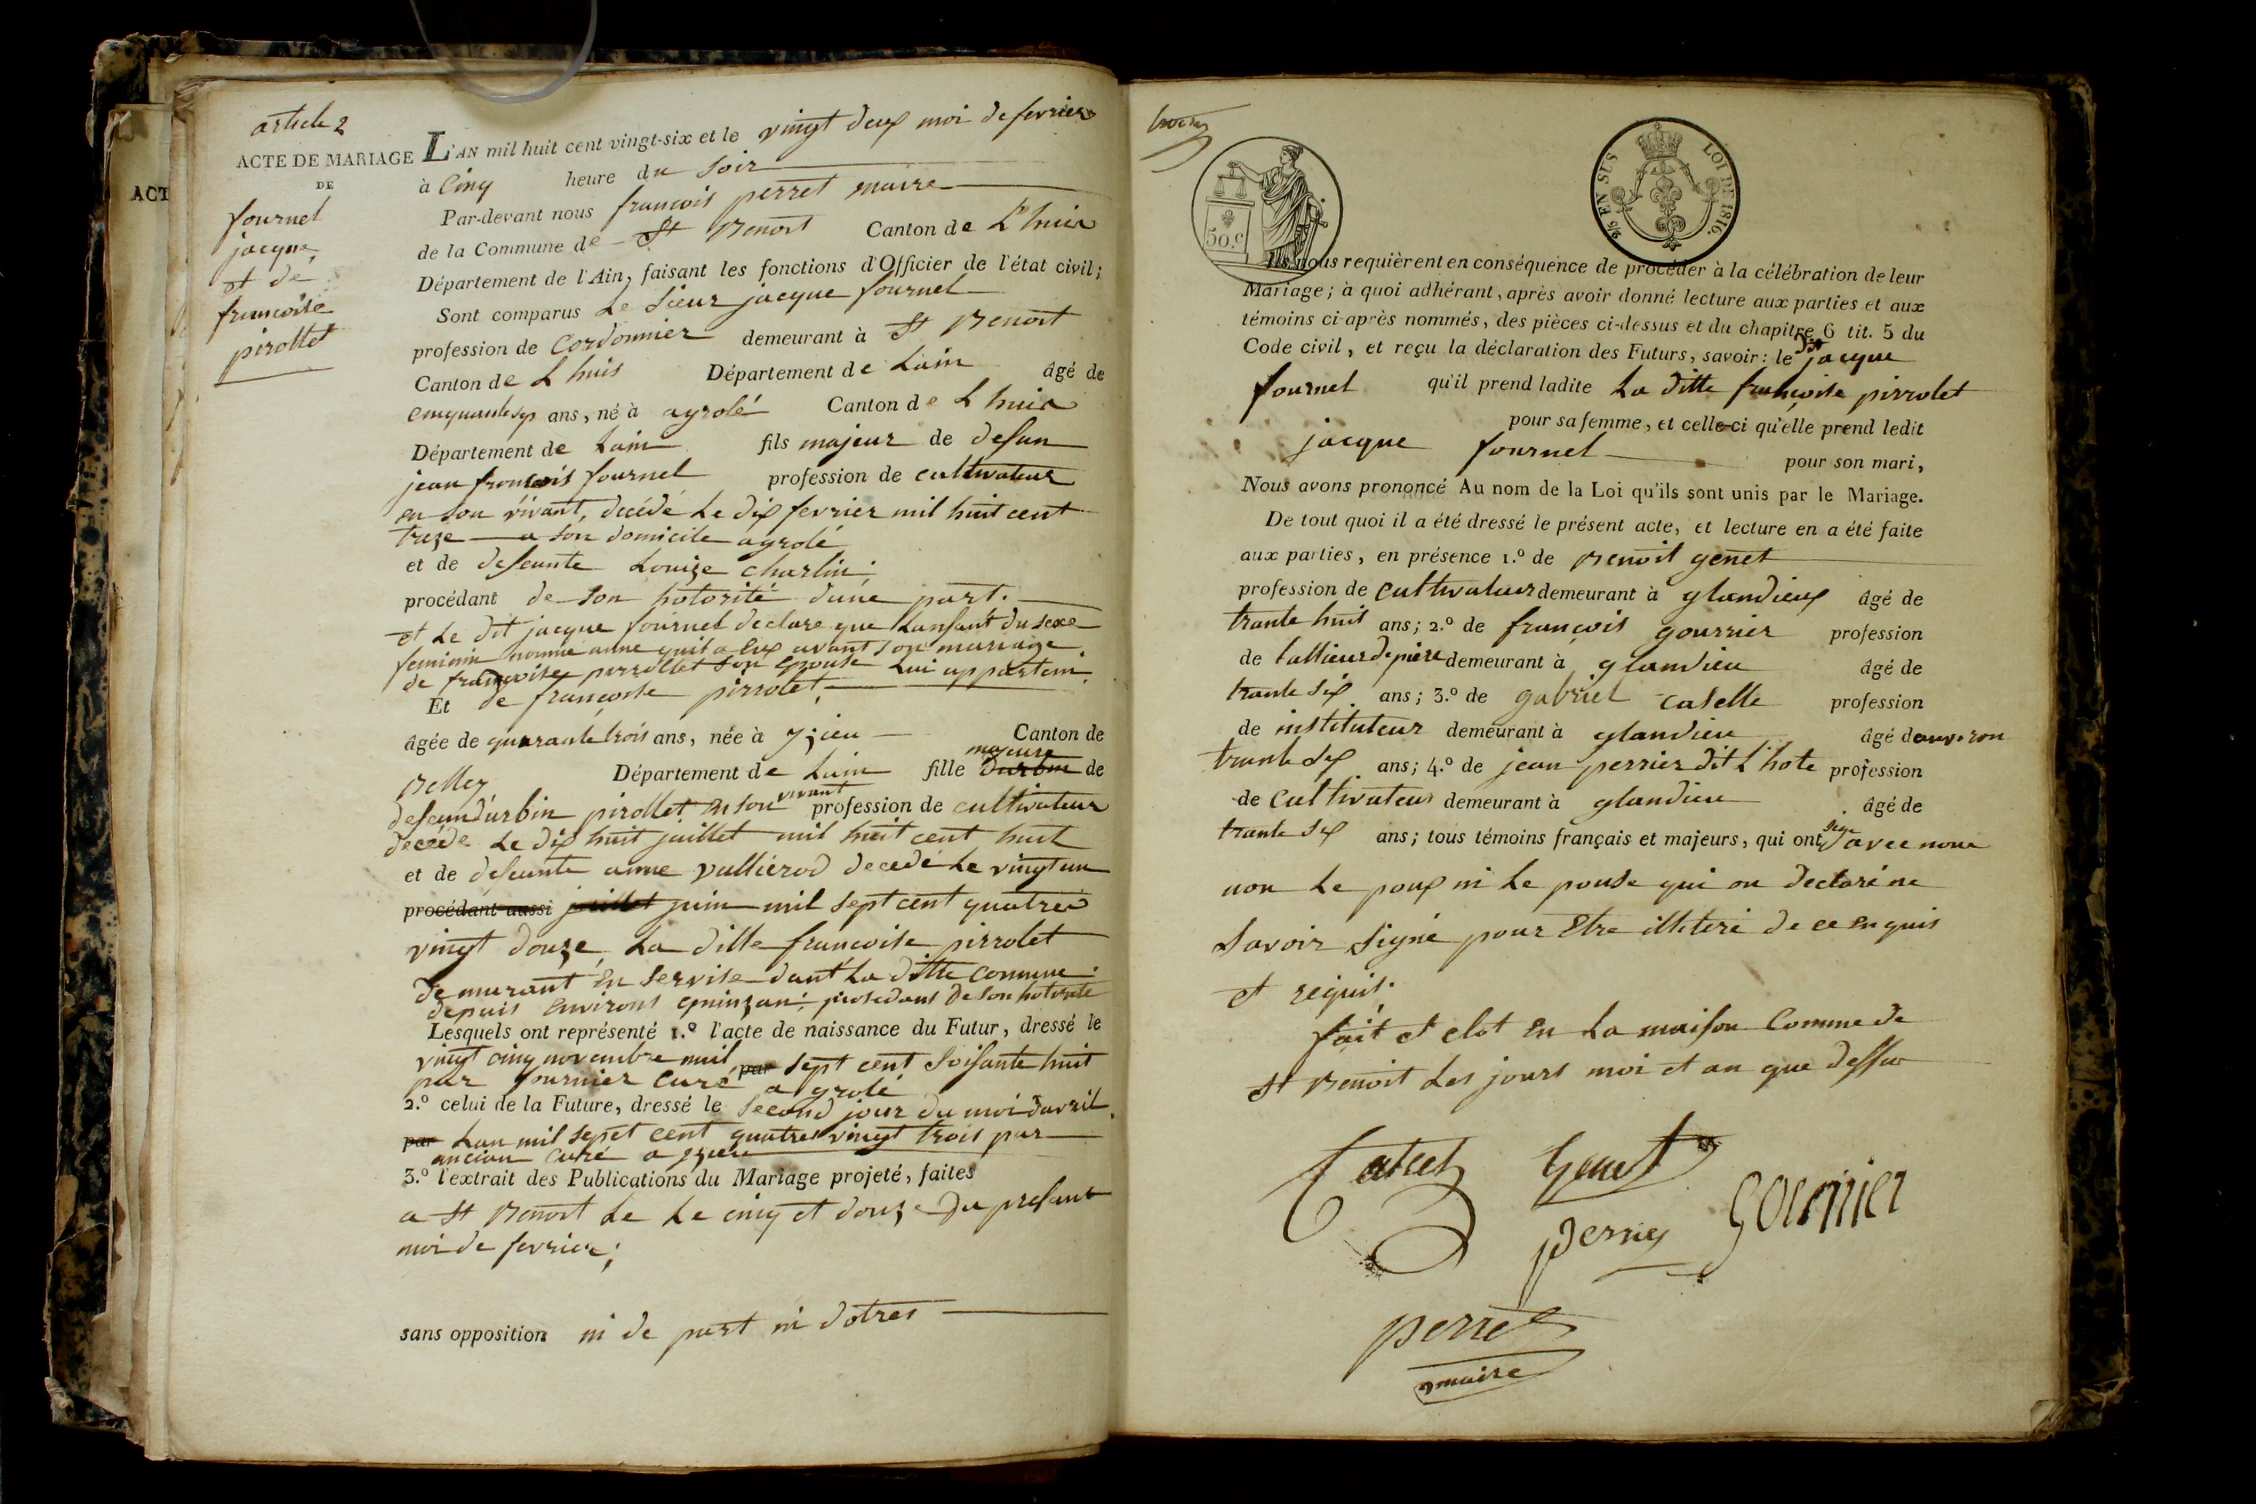 article 2
ACTE DE MARIAGE
DE
fournel
jacque
et de
francoise
pirollet
ACT
L'AN mil huit cent vingt-six et le vingt deux moi de fevrier
à Cinq heure du Soir
Par-devant nous francois perret maire
de la Commune de St Benoit Canton de L'huis
Département de l'Ain, faisant les fonctions d'Officier de l'état civil;
Sont comparus Le Sieur jacque fournel
profession de Cordonnier demeurant à St Benoit
Canton de L huis Département de Lain âgé de
cinquante sep ans, né à agrolé Canton de L huis
Département de Lain fils majeur de defun
jean francois fournel profession de cultivateur
en son vivant, decédé Le dix fevrier mil huit cent
treze a son domicile agrolé
et de defeunte Louize charlin;
procédant de son hotorité dune part.
et Le dit jacque fournel declare que Lanfant du sexe
feminin nomme anne quil a eux avant son mariage
de françoise pirrollet son epouse Lui appartein.
Et de françoise pirrolet
âgée de quarante trois ans, née à yzieu Canton de
Belley Département de Lain fille majeure durbin de
defeun durbin pirollet en son vivant profession de cultivateur
decede Le dix huit juillet mil huit cent huit
et de defeunte anne vulliérod decedé Le vingt un
procédant aussi juillet juin mil sept cent quatre
vingt douze La ditte francoise pirrolet
demurant en servise dant La ditte commune
depuis environt quinzan; prosedant de son hotorité
Lesquels ont représenté 1.º l'acte de naissance du Futur, dressé le
vingt cinq novembre mil par sept cent soisante huit
par fournier curé a grolé
2.º celui de la Future, dressé le second jour du moi davril
par Lan mil sepet cent quatres vingt trois par
ancian curé a yzieu
3.º l'extrait des Publications du Mariage projeté, faites
a St Benoit Le Le cinq et douze du presant
moi de fevrier;
sans opposition ni de part ni dotres
50.c
2/5 EN SUS LOI DE 1816.
Ils nous requièrent en conséquence de procéder à la célébration de leur
Mariage; à quoi adhérant, après avoir donné lecture aux parties et aux
témoins ci-après nommés, des pièces ci-dessus et du chapitre 6 tit. 5 du
Code civil, et reçu la déclaration des Futurs, savoir: le dit jacque
fournel qu'il prend ladite La ditte françoise pirrolet
pour sa femme, et celle-ci qu'elle prend ledit
jacque fournel pour son mari,
Nous avons prononcé Au nom de la Loi qu'ils sont unis par le Mariage.
De tout quoi il a été dressé le présent acte, et lecture en a été faite
aux parties, en présence 1.º de Benoit genet
profession de cultivateur demeurant à glandieux âgé de
trante huit ans; 2.º de françois gourrier profession
de tallieur de piere demeurant à glandieu âgé de
trante six ans; 3.º de gabriel catelle profession
de instituteur demeurant à glandieu âgé de anviron
trante six ans; 4.º de jean perrier dit L'hote profession
de cultivateur demeurant à glandieu âgé de
trante six ans; tous témoins français et majeurs, qui ont signe avec nous
non Le poux ni Le pouse qui on declaré ne
savoir signé pour etre illeteré de ce enquis
et requis.
fait et clot en La maison Commune de
St Benoit Les jours moi et an que dessus
Genet
Perrier
Gourrier
perret
maire